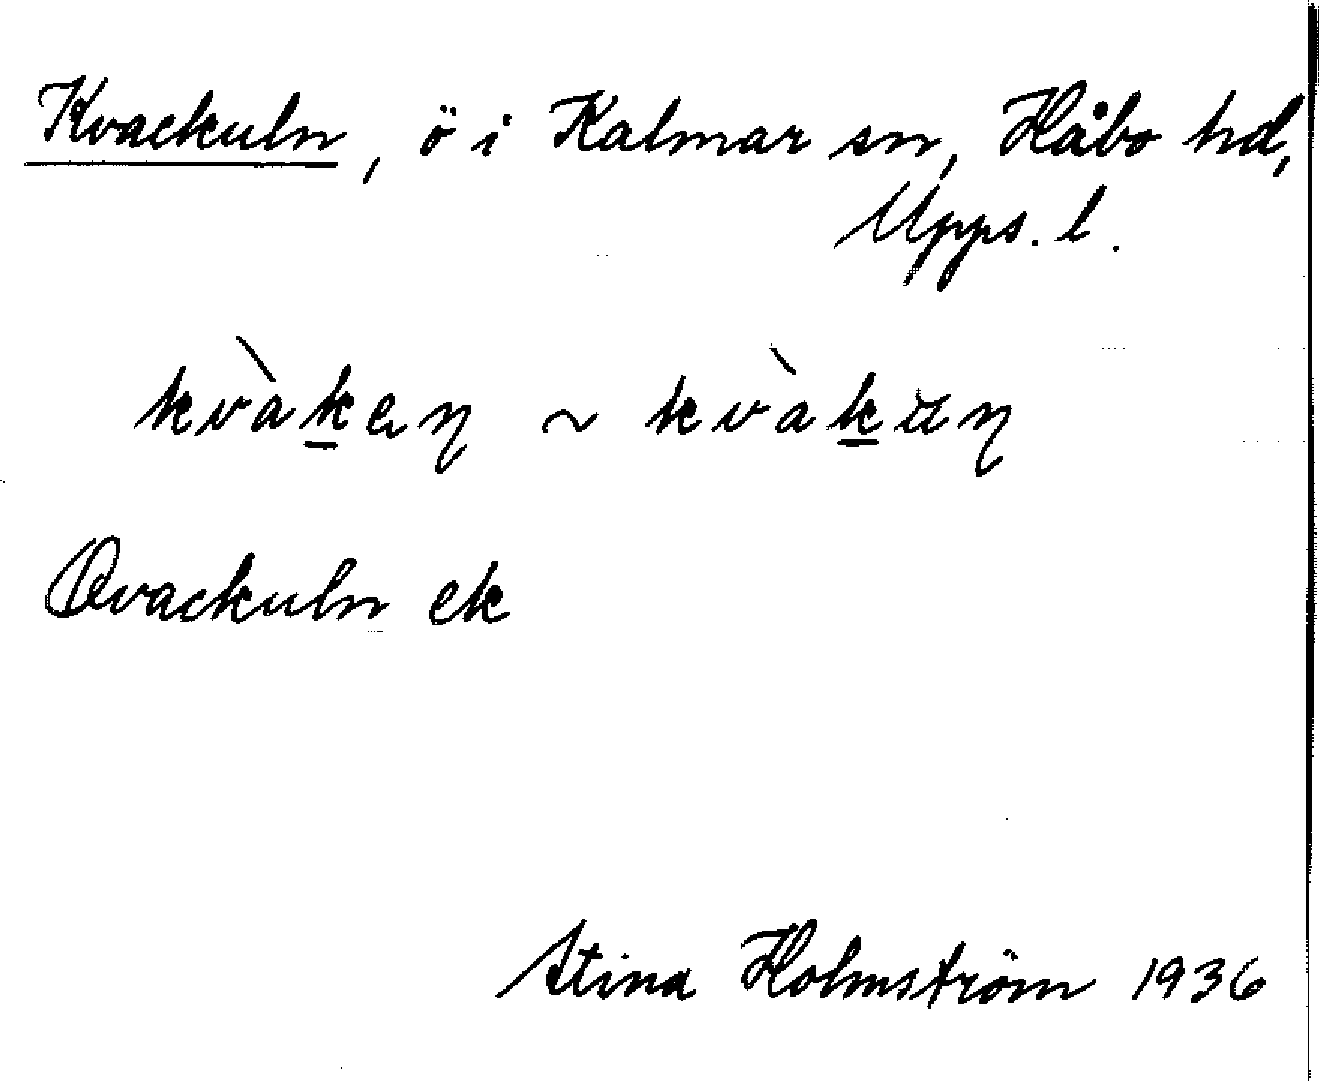 Kvackuln, ö i Kalmar sn, Håbo hd,
Upps. l.
kvàk̲eη ~ kvàk̲uη
Qvackuln ek
Stina Holmström 1936